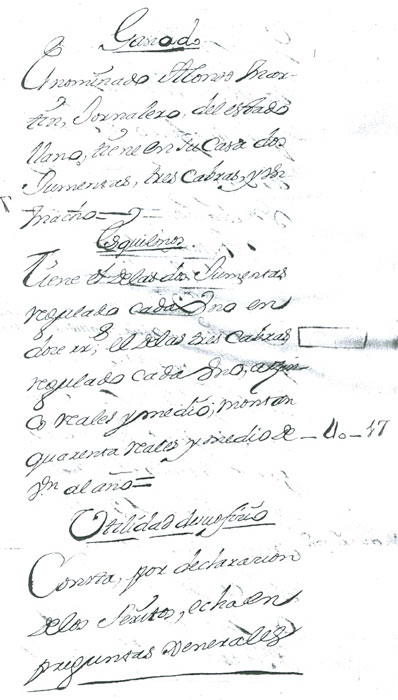 Ganado
El nominado Alonso Mar-
tin, Jornalero, del estado
llano, tiene en su Casa dos
Jumentas, tres Cabras, y un
macho=
Esquilmos.
Tiene el delas dos Jumentas
regulado cada Uno en
doce rr.s; el delas tres Cabras
regulado cada Uno, a cin
co reales y medio, montan
quarenta reales y medio de - 40-17
vn al año=
Utilidad de su ofiz.o
Consta, por declarazion
delos Peritos, echa en
preguntas Generales